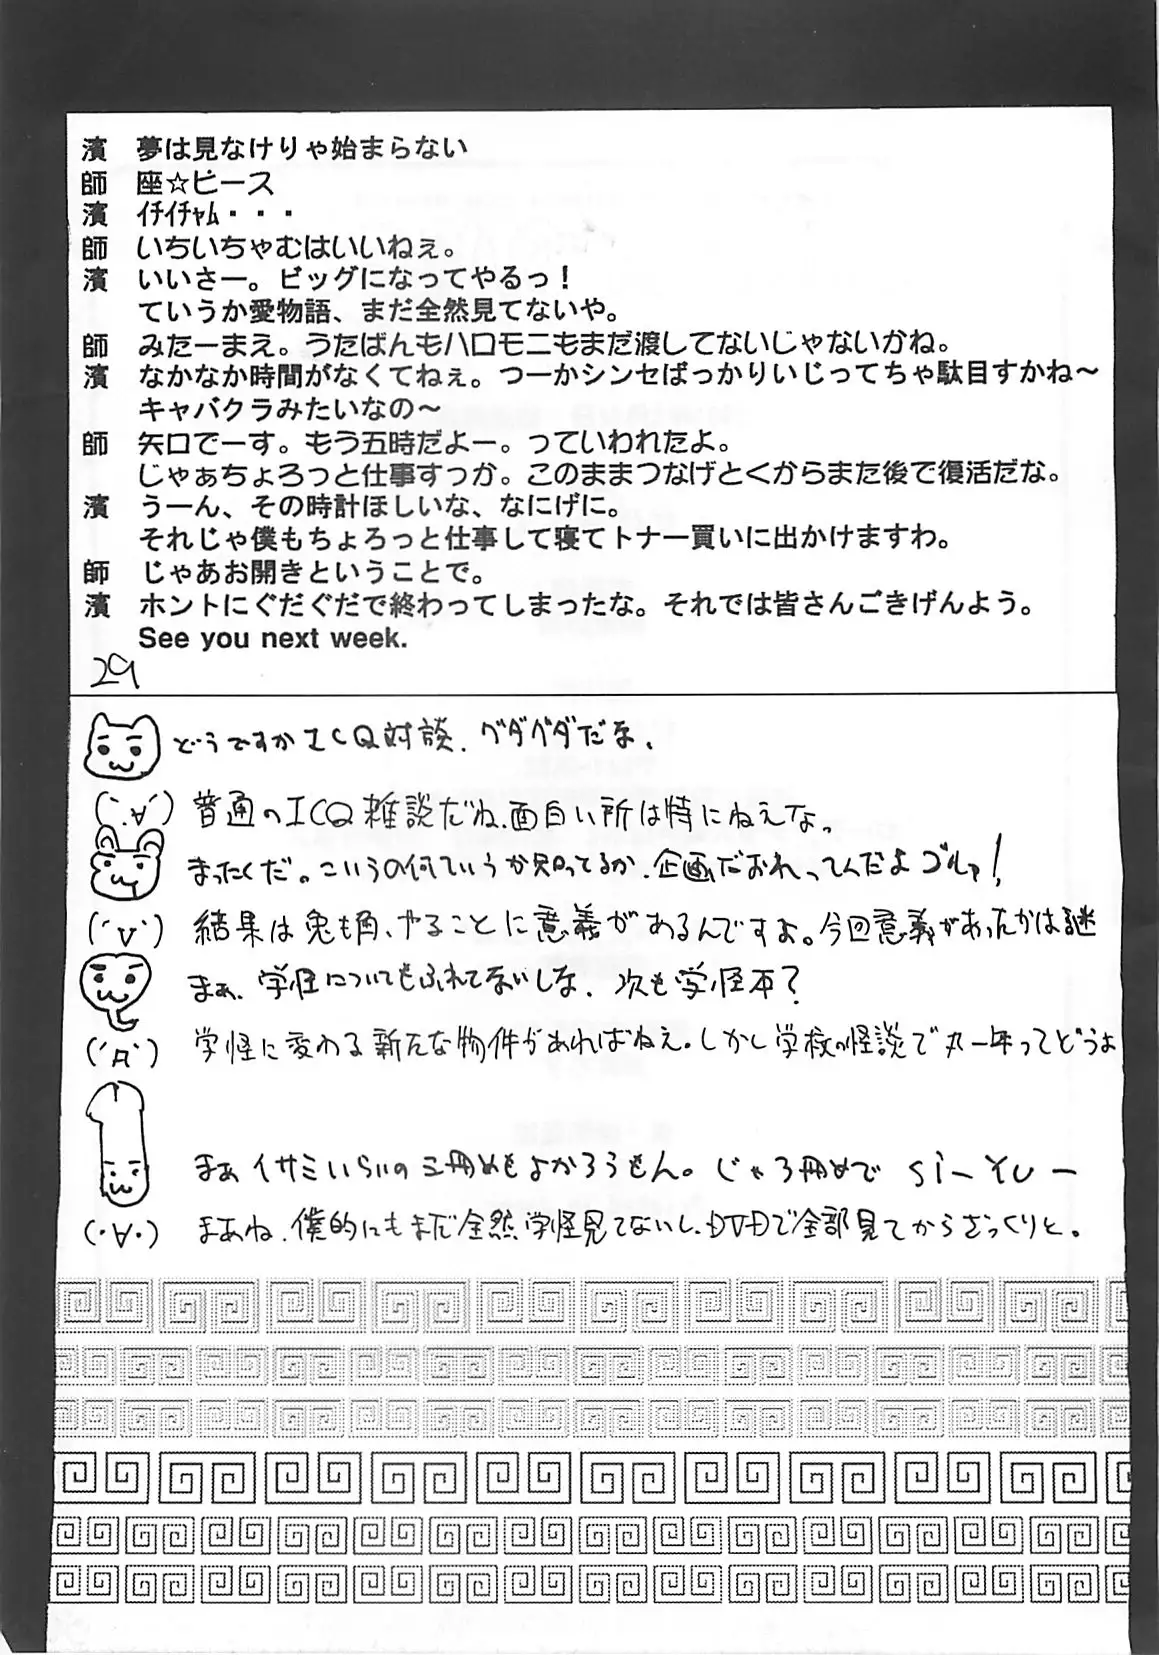 濱 夢は見なけりゃ始まらない
師 座☆ピース
濱 ｲﾁｲﾁｬﾑ・・・
師 いちいちゃむはいいねぇ。
濱 いいさー。ビッグになってやるっ！
ていうか愛物語、まだ全然見てないや。
師 みたーまえ。うたばんもハロモニもまだ渡してないじゃないかね。
濱 なかなか時間がなくてねぇ。つーかシンセばっかりいじってちゃ駄目すかね～
キャバクラみたいなの～
師 矢口でーす。もう五時だよー。っていわれたよ。
じゃぁちょろっと仕事すっか。このままつなげとくからまた後で復活だな。
濱 うーん、その時計ほしいな、なにげに。
それじゃ僕もちょろっと仕事して寝てトナー買いに出かけますわ。
師 じゃあお開きということで。
濱 ホントにぐだぐだで終わってしまったな。それでは皆さんごきげんよう。
See you next week.
29
どうですかICQ対談、グダグダだな、
(´∀`) 普通のICQ雑談だね、面白い所は特にねえな。
まったくだ。こいうの何ていうか知ってるか、企画だおれってんだよゴルァ!
(´∀`) 結果は兎も角、やることに意義があるんですよ。今回意義があったかは謎
まぁ、学怪についてもふれてないしな、次も学怪本?
(´Д`) 学怪に変わる新たな物件があればねえ。しかし学校の怪談で丸一年ってどうよ
まぁイサミいらいの三冊めもよかろうもん。じゃ3冊めで si-yu-
(・∀・) まあね、僕的にもまだ全然学怪見てないし、DVDで全部見てからざっくりと。